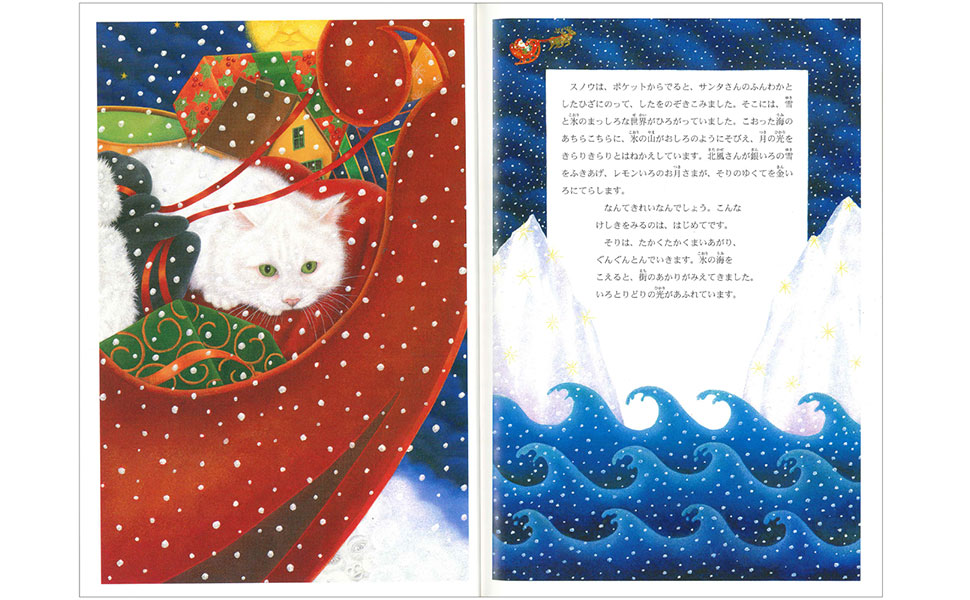 スノウは、ポケットからでると、サンタさんのふんわかと
したひざにのって、したをのぞきこみました。そこには、雪
と氷のまっしろな世界がひろがっていました。こおった海の
あちらこちらに、氷の山がおしろのようにそびえ、月の光を
きらりきらりとはねかえしています。北風さんが銀いろの雪
をふきあげ、レモンいろのお月さまが、そりのゆくてを金い
ろにてらします。
なんてきれいなんでしょう。こんな
けしきをみるのは、はじめてです。
そりは、たかくたかくまいあがり、
ぐんぐんとんでいきます。氷の海を
こえると、街のあかりがみえてきました。
いろとりどりの光があふれています。